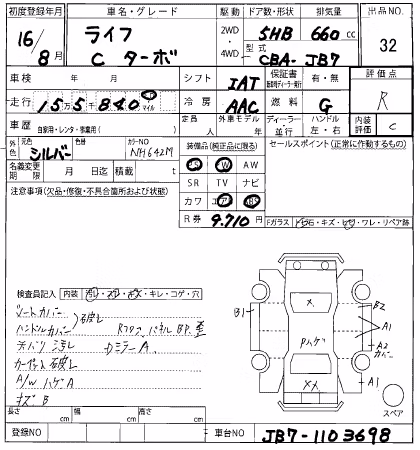 初度登録年月 車名・グレード 駆動 ドア数・形状 排気量 出品NO
16/8月 ライフ C ターボ 2WD・4WD 5HB 660cc 32
型式 CBA- JB7
車検 年 月 シフト IAT 保証書 有・無 評価点
走行 155千840 マイル 冷房 AAC 燃料 G R
車歴 自家用・レンタ・事業用( ) 定員 人 外車モデル 年 ディーラー・並行 ハンドル 左・右 内装評価 C
外色 元色 シルバー 色替 カラーNO NH642M
装備品(純正品に限る) セールスポイント(正常に作動するもの)
名義変更期限 月 日迄 積載 t
PS PW AW
SR TV ナビ
カワ エアB ABS
注意事項(欠品・修復・不具合箇所および状態)
R券 9.710円
Fガラス トビ石・キズ・ヒビ・ワレ・リペア跡
検査員記入 内装 ヨレ・スレ・コゲ・キレ・コゲ・穴
シートカバー
ハンドルカバー 破レ
天バリ 汚レ Rフロア パネル BP. 歪
カーペット 破レ Rミラー A
A/W ハゲA
キズ B
B1 B2 A1 A2 カバー A1
× Pハゲ ××
スペア
長さ cm 幅 cm 高さ cm
登録NO 車台NO JB7-1103698